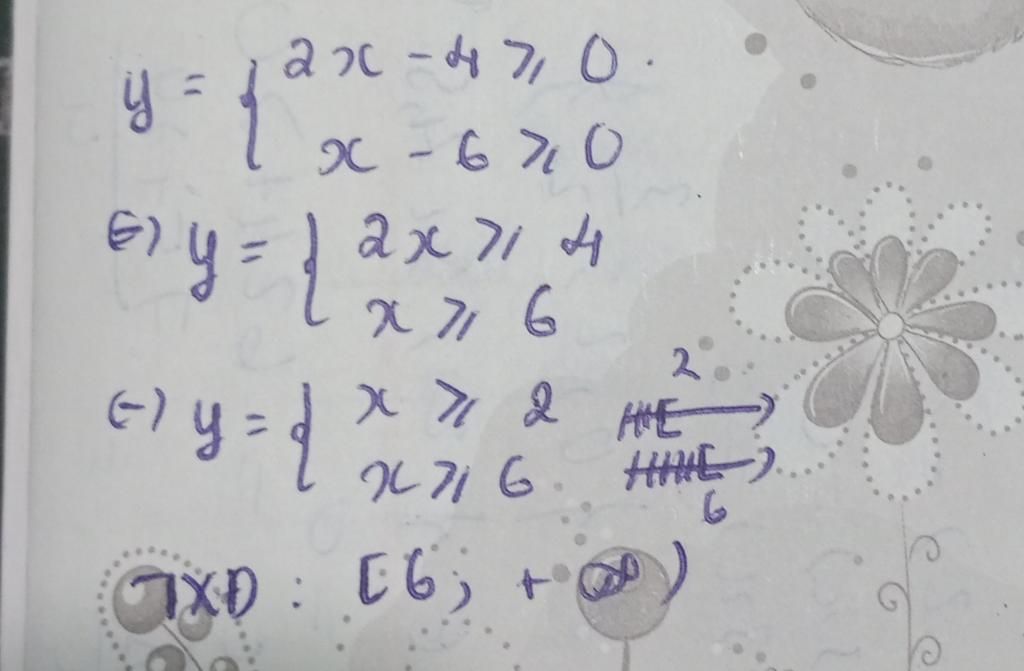 y = { 2x - 4 ⩾ 0.
x - 6 ⩾ 0
(=) y = { 2x ⩾ 4
x ⩾ 6
(=) y = { x ⩾ 2
2
x ⩾ 6
6
TXD : [6; +∞)